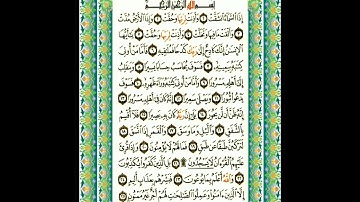 بِسْمِ اللَّهِ الرَّحْمَٰنِ الرَّحِيمِ
إِذَا السَّمَاءُ انشَقَّتْ ١ وَأَذِنَتْ لِرَبِّهَا وَحُقَّتْ ٢ وَإِذَا الْأَرْضُ مُدَّتْ
٣ وَأَلْقَتْ مَا فِيهَا وَتَخَلَّتْ ٤ وَأَذِنَتْ لِرَبِّهَا وَحُقَّتْ ٥ يَٰأَيُّهَا
الْإِنسَٰنُ إِنَّكَ كَادِحٌ إِلَىٰ رَبِّكَ كَدْحًا فَمُلَٰقِيهِ ٦ فَأَمَّا مَنْ أُوتِيَ
كِتَٰبَهُ بِيَمِينِهِ ٧ فَسَوْفَ يُحَاسَبُ حِسَابًا يَسِيرًا ٨ وَيَنقَلِبُ
إِلَىٰ أَهْلِهِ مَسْرُورًا ٩ وَأَمَّا مَنْ أُوتِيَ كِتَٰبَهُ وَرَاءَ ظَهْرِهِ ١٠ فَسَوْفَ
يَدْعُوا ثُبُورًا ١١ وَيَصْلَىٰ سَعِيرًا ١٢ إِنَّهُ كَانَ فِي أَهْلِهِ مَسْرُورًا ١٣
إِنَّهُ ظَنَّ أَن لَّن يَحُورَ ١٤ بَلَىٰ إِنَّ رَبَّهُ كَانَ بِهِ بَصِيرًا ١٥ فَلَا أُقْسِمُ
بِالشَّفَقِ ١٦ وَاللَّيْلِ وَمَا وَسَقَ ١٧ وَالْقَمَرِ إِذَا اتَّسَقَ ١٨
لَتَرْكَبُنَّ طَبَقًا عَن طَبَقٍ ١٩ فَمَا لَهُمْ لَا يُؤْمِنُونَ ٢٠ وَإِذَا قُرِئَ
عَلَيْهِمُ الْقُرْءَانُ لَا يَسْجُدُونَ ٢١ بَلِ الَّذِينَ كَفَرُوا يُكَذِّبُونَ
٢٢ وَاللَّهُ أَعْلَمُ بِمَا يُوعُونَ ٢٣ فَبَشِّرْهُم بِعَذَابٍ أَلِيمٍ ٢٤
إِلَّا الَّذِينَ ءَامَنُوا وَعَمِلُوا الصَّٰلِحَٰتِ لَهُمْ أَجْرٌ غَيْرُ مَمْنُونٍ ٢٥